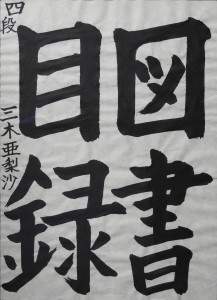 図書
目録
四段 三木亜梨沙